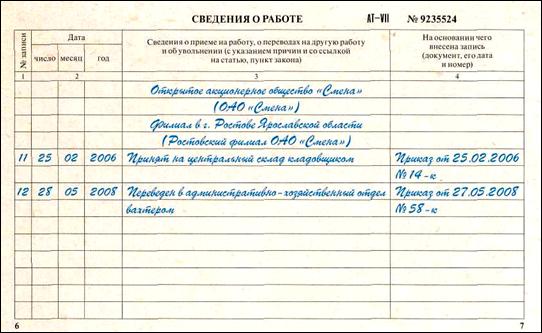 СВЕДЕНИЯ О РАБОТЕ АТ-VII № 9235524
№ записи
Дата
число месяц год
Сведения о приеме на работу, о переводах на другую работу
и об увольнении (с указанием причин и со ссылкой
на статью, пункт закона)
На основании чего
внесена запись
(документ, его дата
и номер)
1 2 3 4
Открытое акционерное общество «Смена»
(ОАО «Смена»)
Филиал в г. Ростове Ярославской области
(Ростовский филиал ОАО «Смена»)
11 25 02 2006 Принят на центральный склад кладовщиком Приказ от 25.02.2006
№ 14-к
12 28 05 2008 Переведен в административно-хозяйственный отдел Приказ от 27.05.2008
вахтером № 58-к
6 7